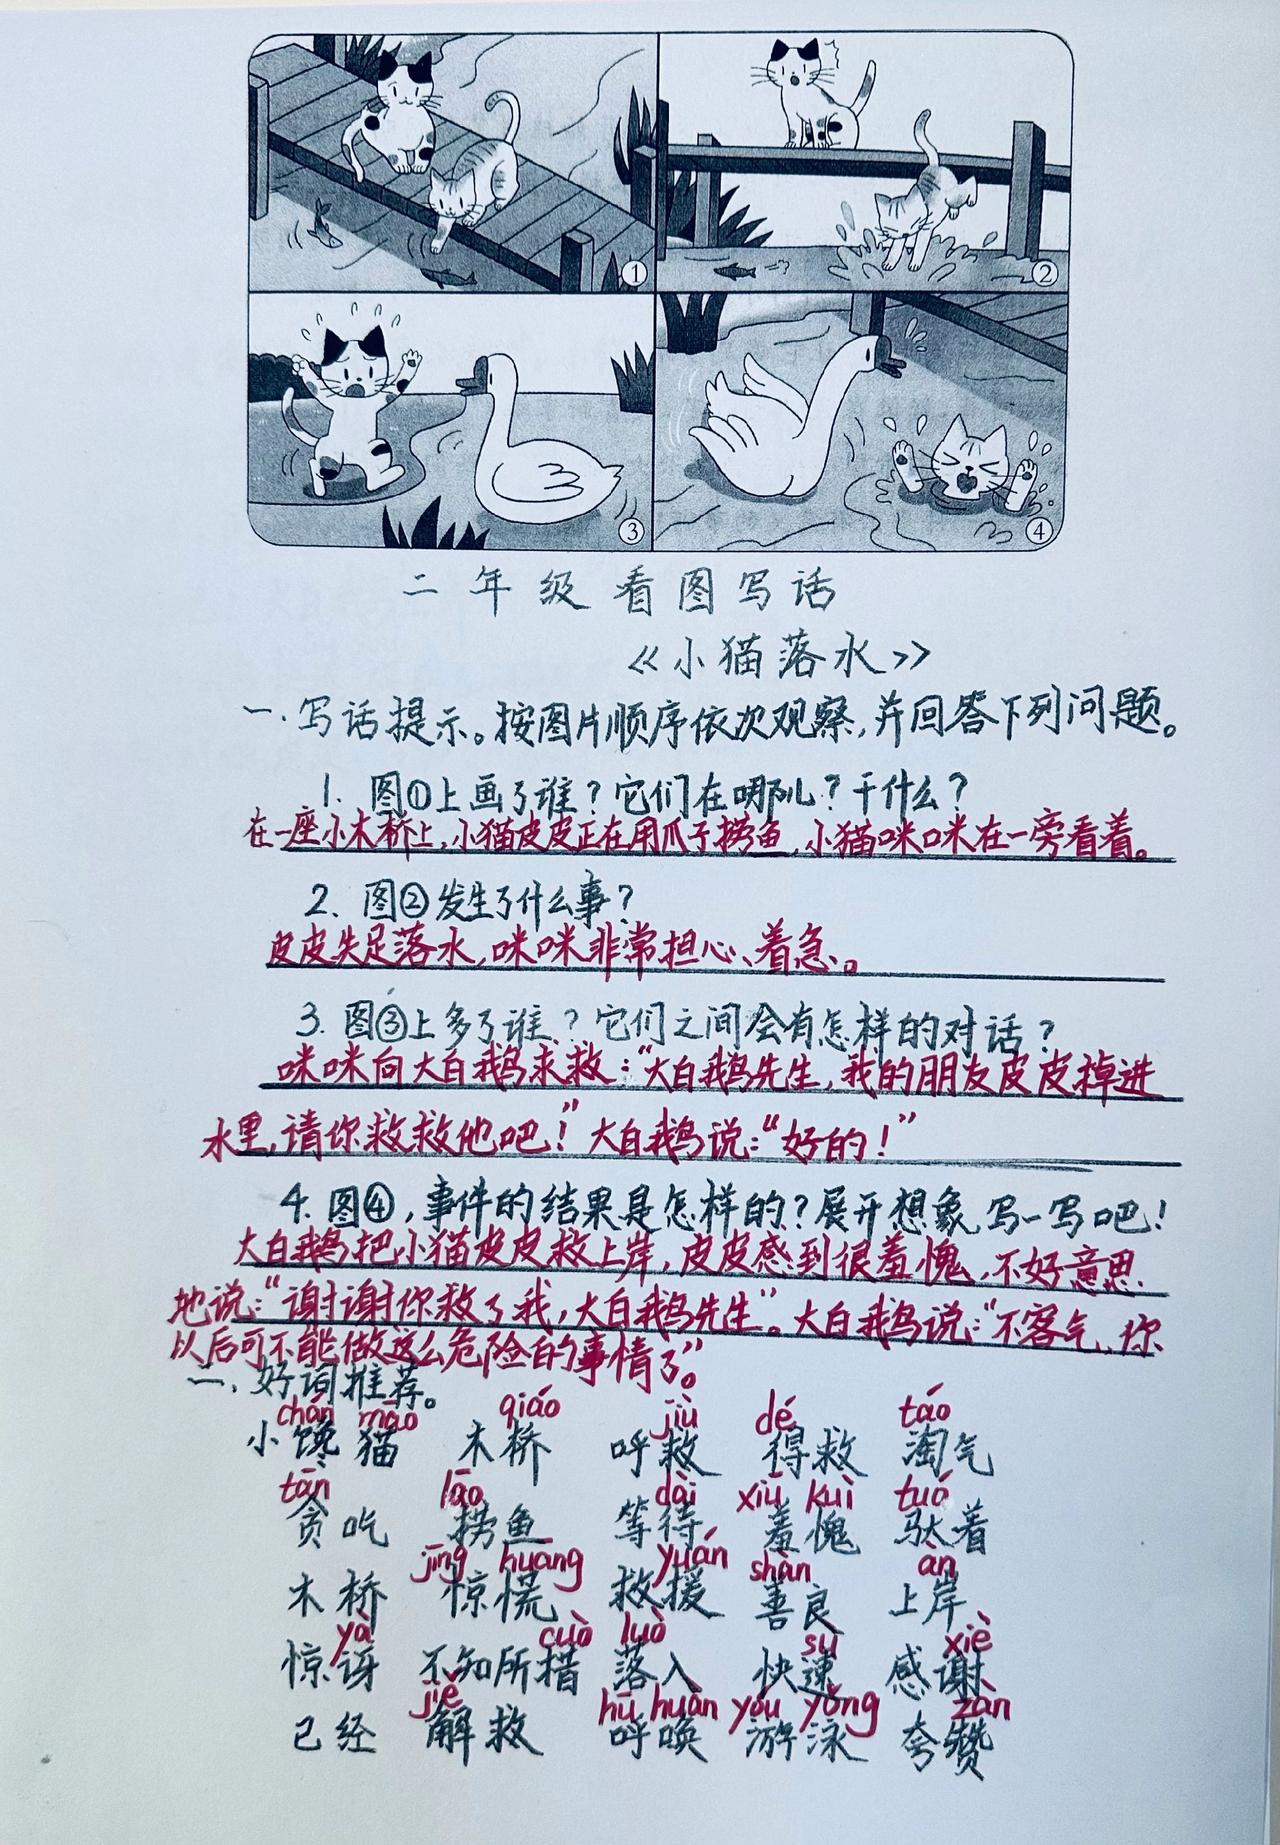 ①
②
③
④
二年级看图写话
《小猫落水》
一.写话提示。按图片顺序依次观察,并回答下列问题。
1. 图①上画了谁?它们在哪儿?干什么?
在一座小木桥上,小猫皮皮正在用爪子捞鱼,小猫咪咪在一旁看着。
2. 图②发生了什么事?
皮皮失足落水,咪咪非常担心、着急。
3. 图③上多了谁?它们之间会有怎样的对话?
咪咪向大白鹅求救:“大白鹅先生,我的朋友皮皮掉进
水里,请你救救他吧!”大白鹅说:“好的!”
4. 图④,事件的结果是怎样的?展开想象写一写吧!
大白鹅把小猫皮皮救上岸,皮皮感到很羞愧,不好意思
地说:“谢谢你救了我,大白鹅先生”。大白鹅说:“不客气,你
以后可不能做这么危险的事情了”。
二、好词推荐。
chán māo qiáo jiù dé táo
小馋猫 木桥 呼救 得救 淘气
tān lāo dài xiū kuì tuó
贪吃 捞鱼 等待 羞愧 驮着
jīng huāng yuán shàn àn
木桥 惊慌 救援 善良 上岸
yà cuò luò sù xiè
惊讶 不知所措 落入 快速 感谢
jiě hū huàn yóu yǒng zàn
已经 解救 呼唤 游泳 夸赞